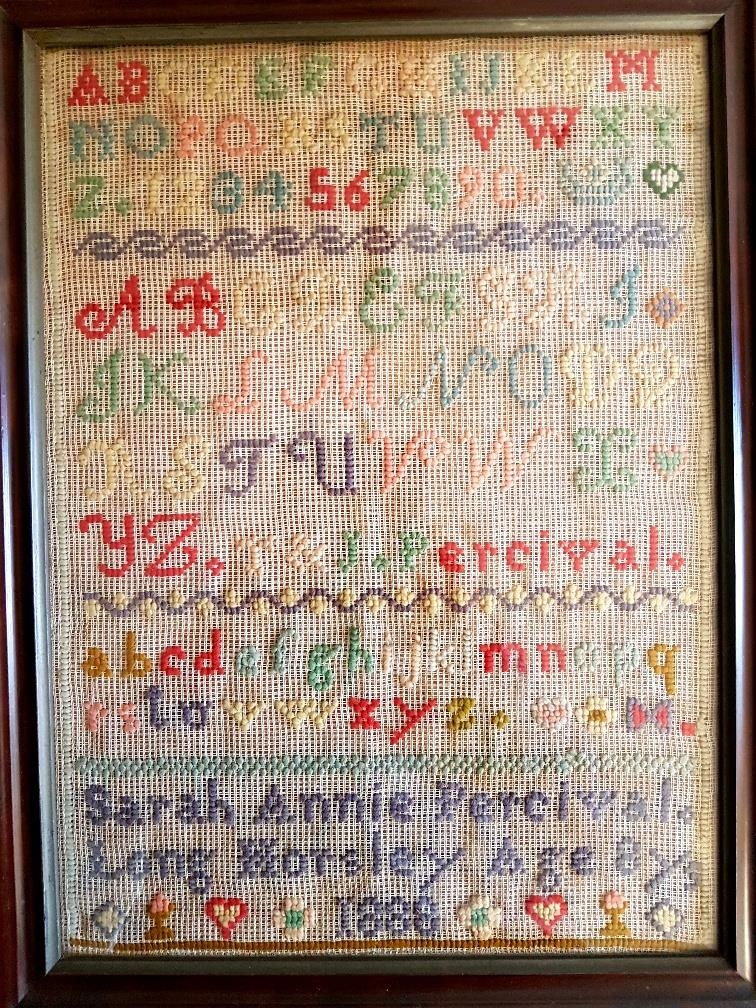 ABCDEFGHIJKLM
NOPQRSTUVWXY
Z. 1234567890.
ABCDEFGHI
JKLMNOPQ
RSTUVWX
YZ. T & J. Percival.
abcdefghijklmnopq
rstuvwxyz.
Sarah Annie Percival.
Long Horsley Age 8 ys
1888